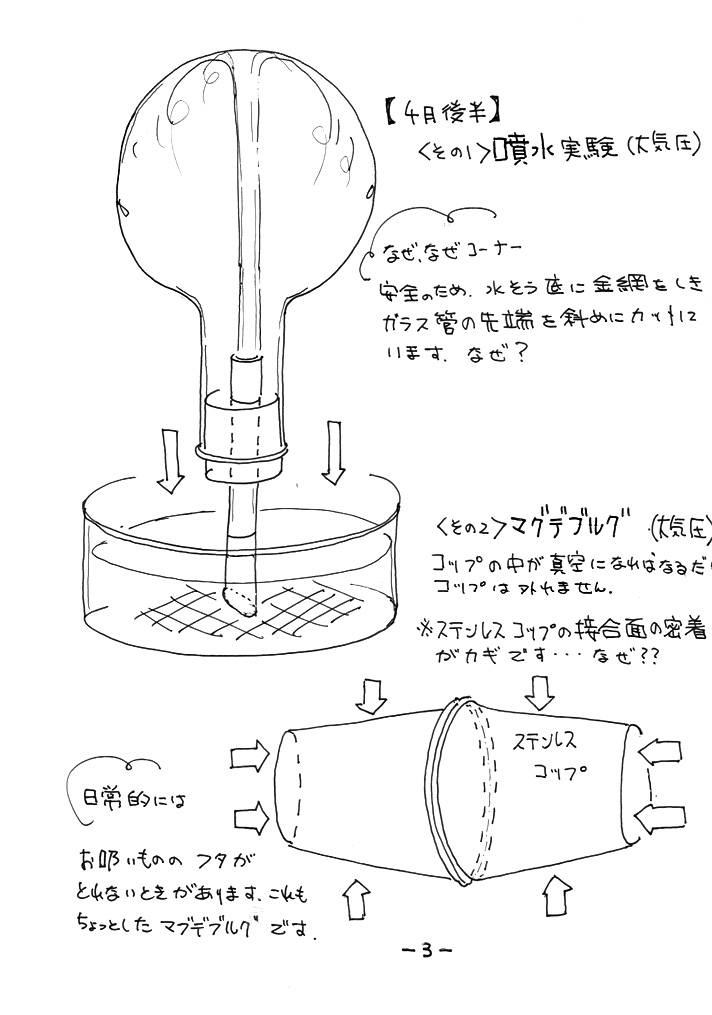 【4月後半】
〈その1〉噴水実験(大気圧)
なぜ、なぜコーナー
安全のため、水そう底に金網をしき
ガラス管の先端を斜めにカットして
います。なぜ?
〈その2〉マグデブルグ (大気圧)
コップの中が真空になればなるだけ
コップは外れません。
※ステンレスコップの接合面の密着
がカギです・・・なぜ??
ステンレス
コップ
日常的には
お吸いものの フタが
とれないときがあります。これも
ちょっとした マグデブルグです。
-3-